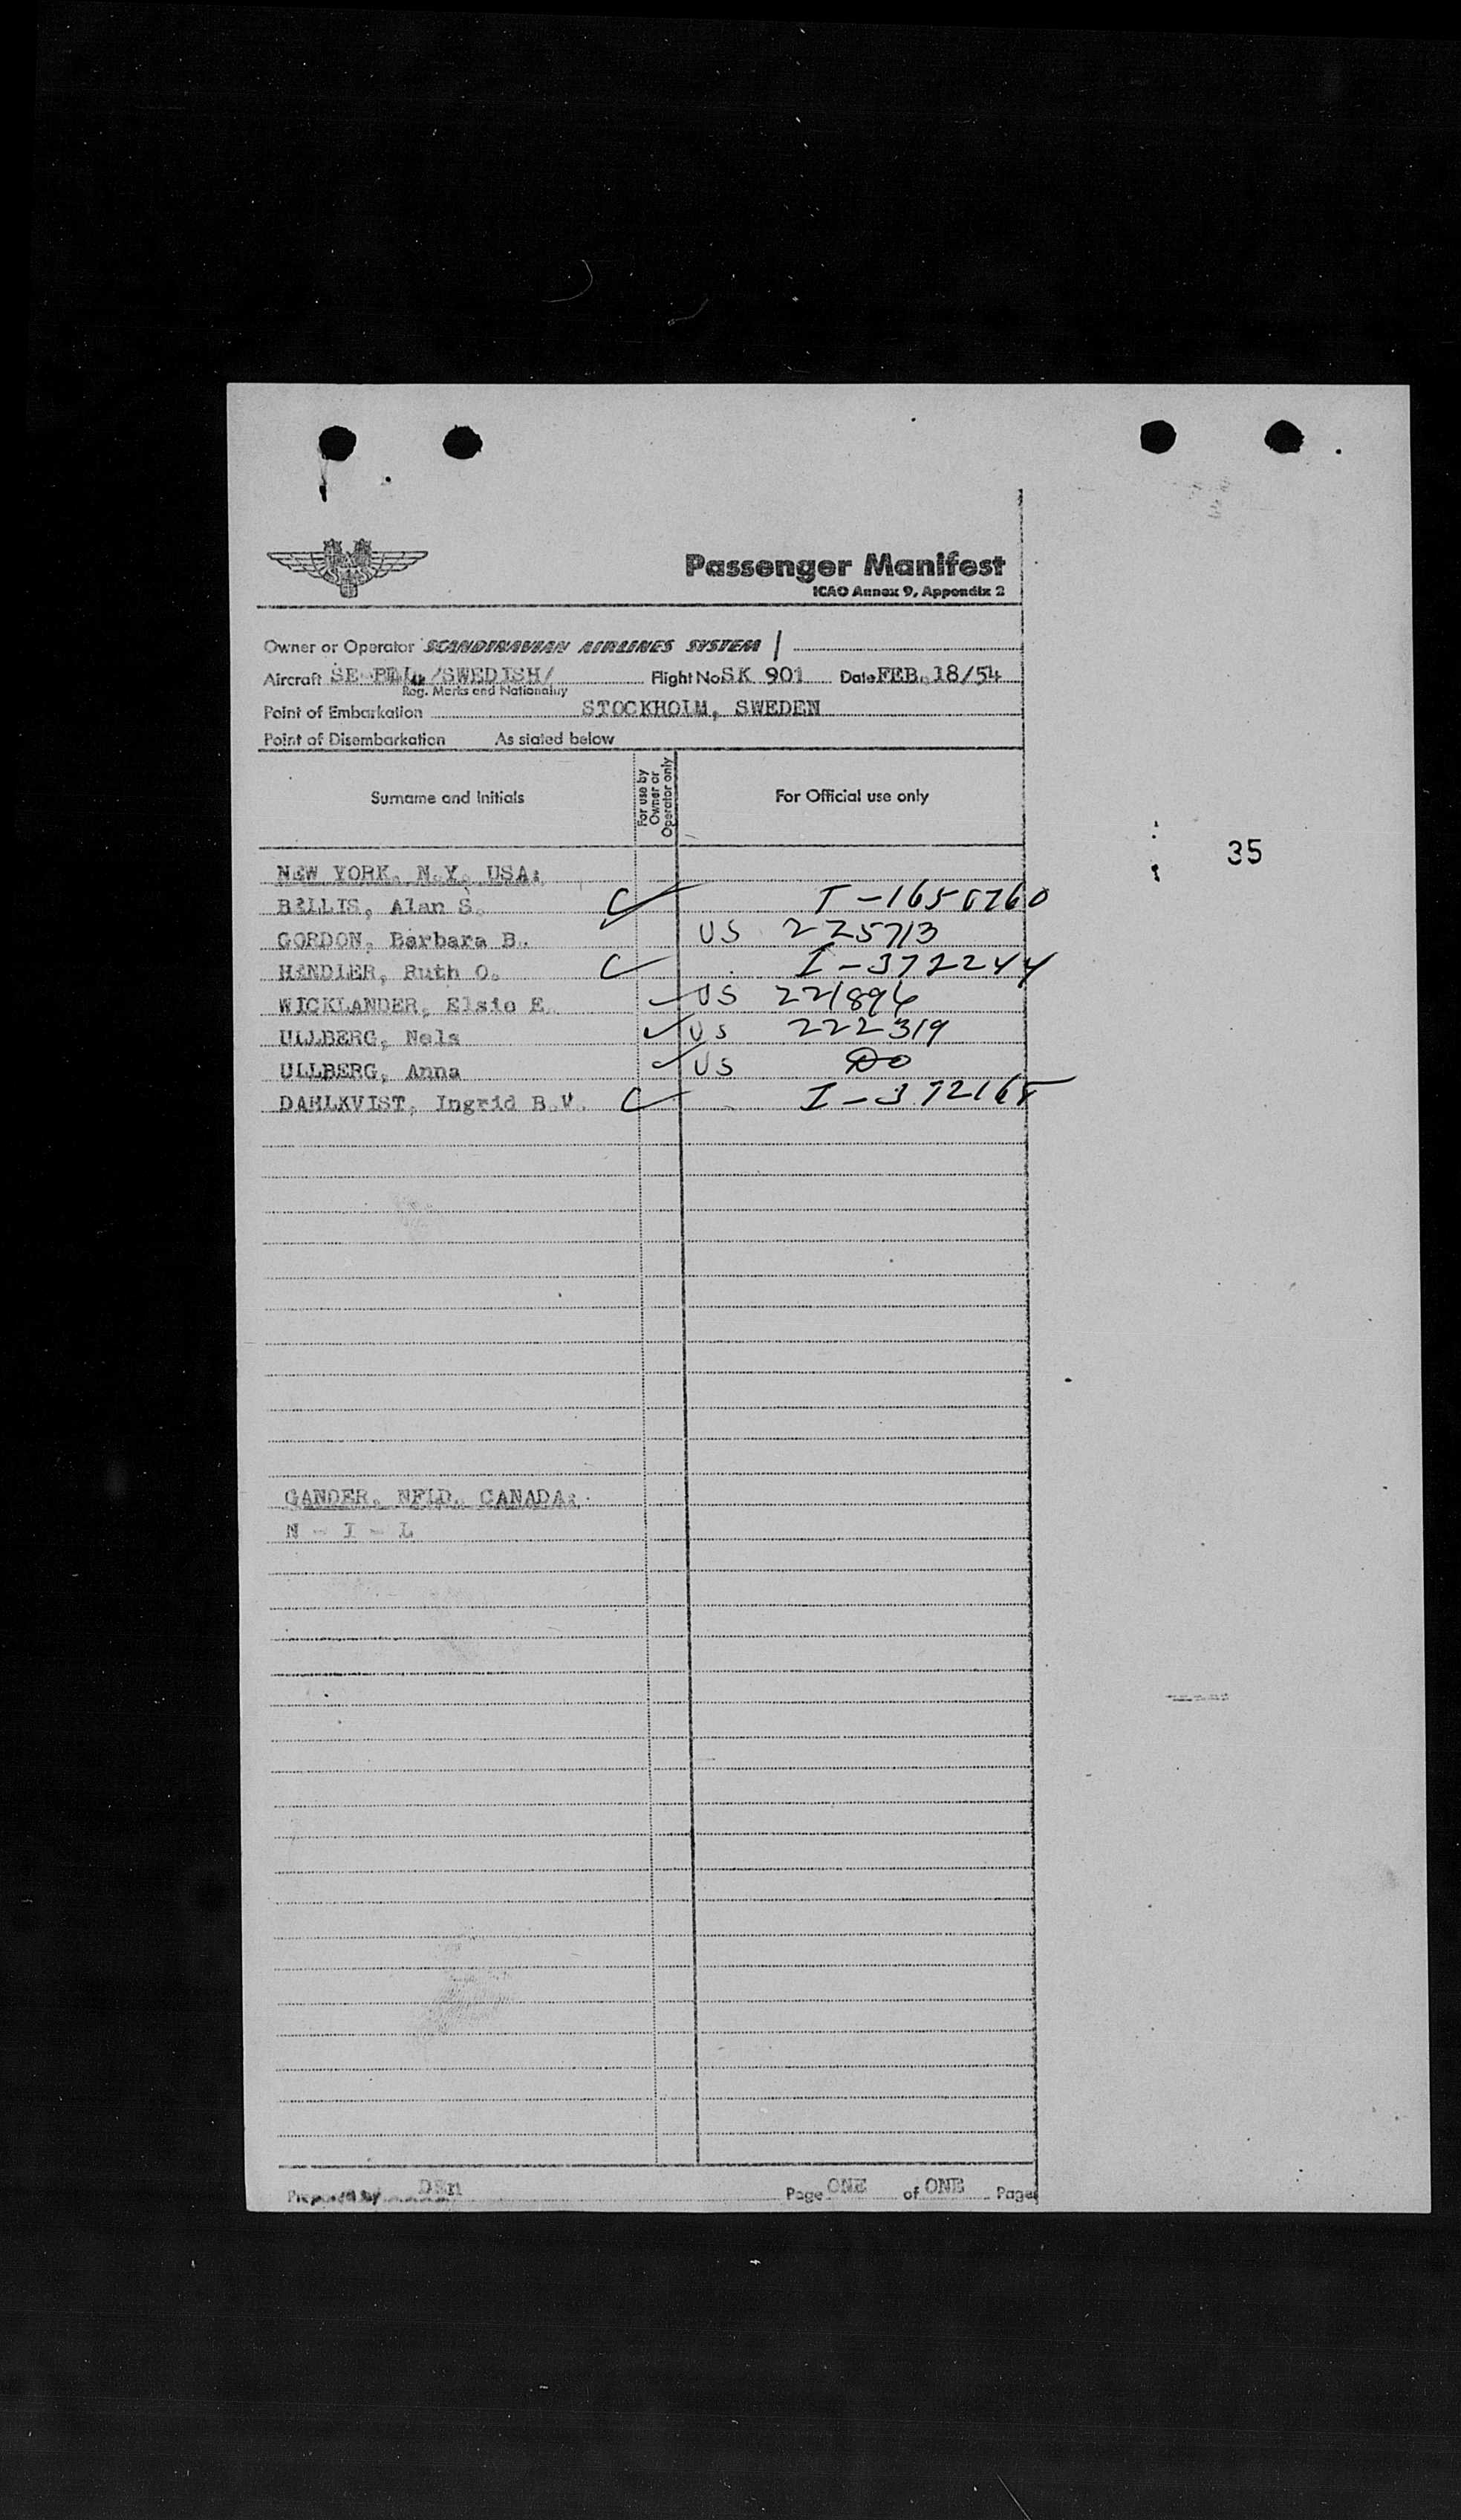 Passenger Manifest
ICAO Annex 9, Appendix 2
Owner or Operator SCANDINAVIAN AIRLINES SYSTEM /
Aircraft /SWEDISH/ Flight No SK 901 Date FEB. 18/54
Reg. Marks and Nationality
Point of Embarkation STOCKHOLM, SWEDEN
Point of Disembarkation As stated below
Surname and Initials For use by Owner or Operator only For Official use only
NEW YORK, N.Y. USA:
35
Alan S.
GORDON, Barbara B. US 225713
HANDLER, Ruth O. I-372244
WICKLANDER, Elsie E. US 221896
ULLBERG, Nels US 222319
ULLBERG, Anna US Do
DAHLKVIST, Ingrid B.W. I-372168
GANDER, NFLD. CANADA:
N - I - L
Prepared by Page ONE of ONE Pages